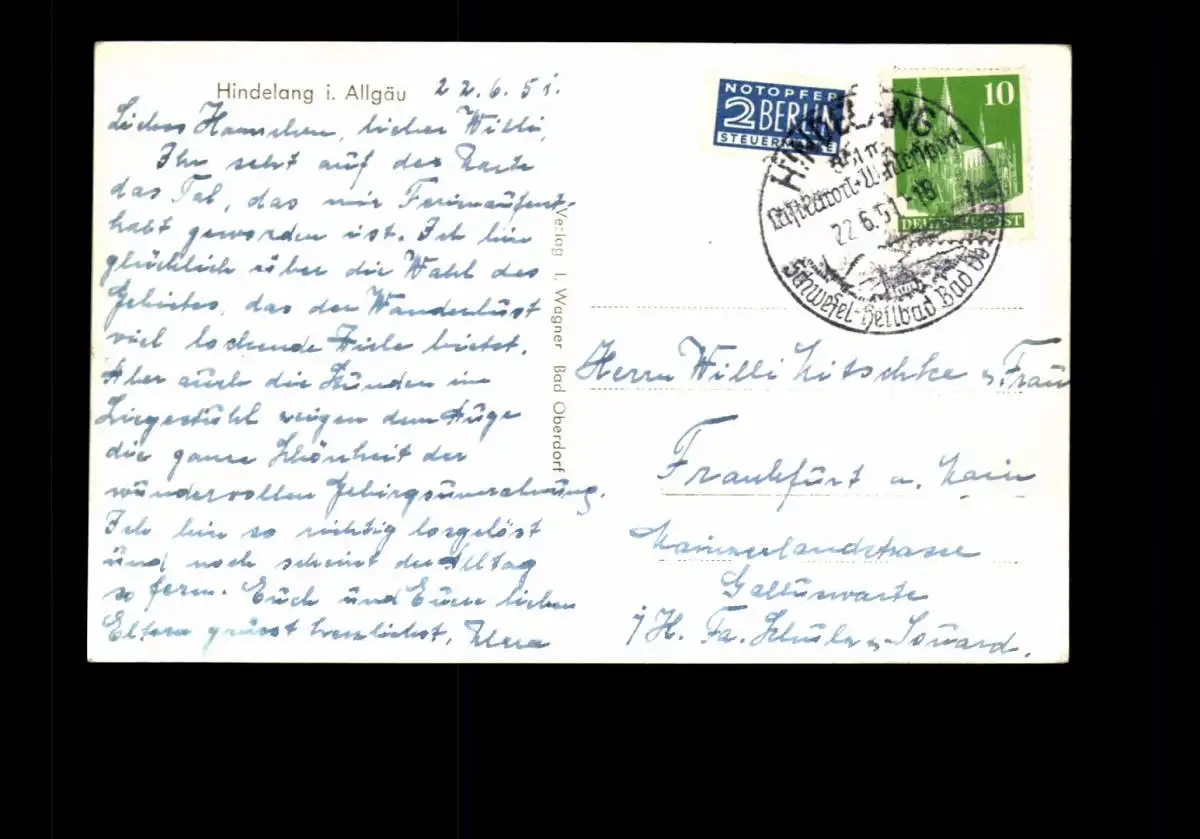 Hindelang i. Allgäu 22.6.51.
Liebes Hannchen, lieber Willi,
Ihr seht auf der Karte
das Tal, das mir Ferienaufent-
halt geworden ist. Ich bin
glücklich über die Wahl des
Gebietes, das der Wanderlust
viel lockende Ziele bietet.
Aber auch die Stunden im
Liegestühl zeigen dem Auge
die ganze Schönheit der
wundervollen Gebirgsumrahmung.
Ich bin so richtig losgelöst
und noch scheint der Alltag
so fern. Euch und Euren lieben
Eltern grüsst herzlichst,
Verlag I. Wagner Bad Oberdorf
NOTOPFER
2 BERLIN
STEUERMARKE
10
DEUTSCHE POST
HINDELANG
Luftkurort + Wintersport
22.6.51-18
Schwefel-Heilbad Bad
Herrn Willi Nitschke u. Frau
Frankfurt a. Main
Mainzerlandstrasse
Galluswarte
i/H. Fa. Schulz u.